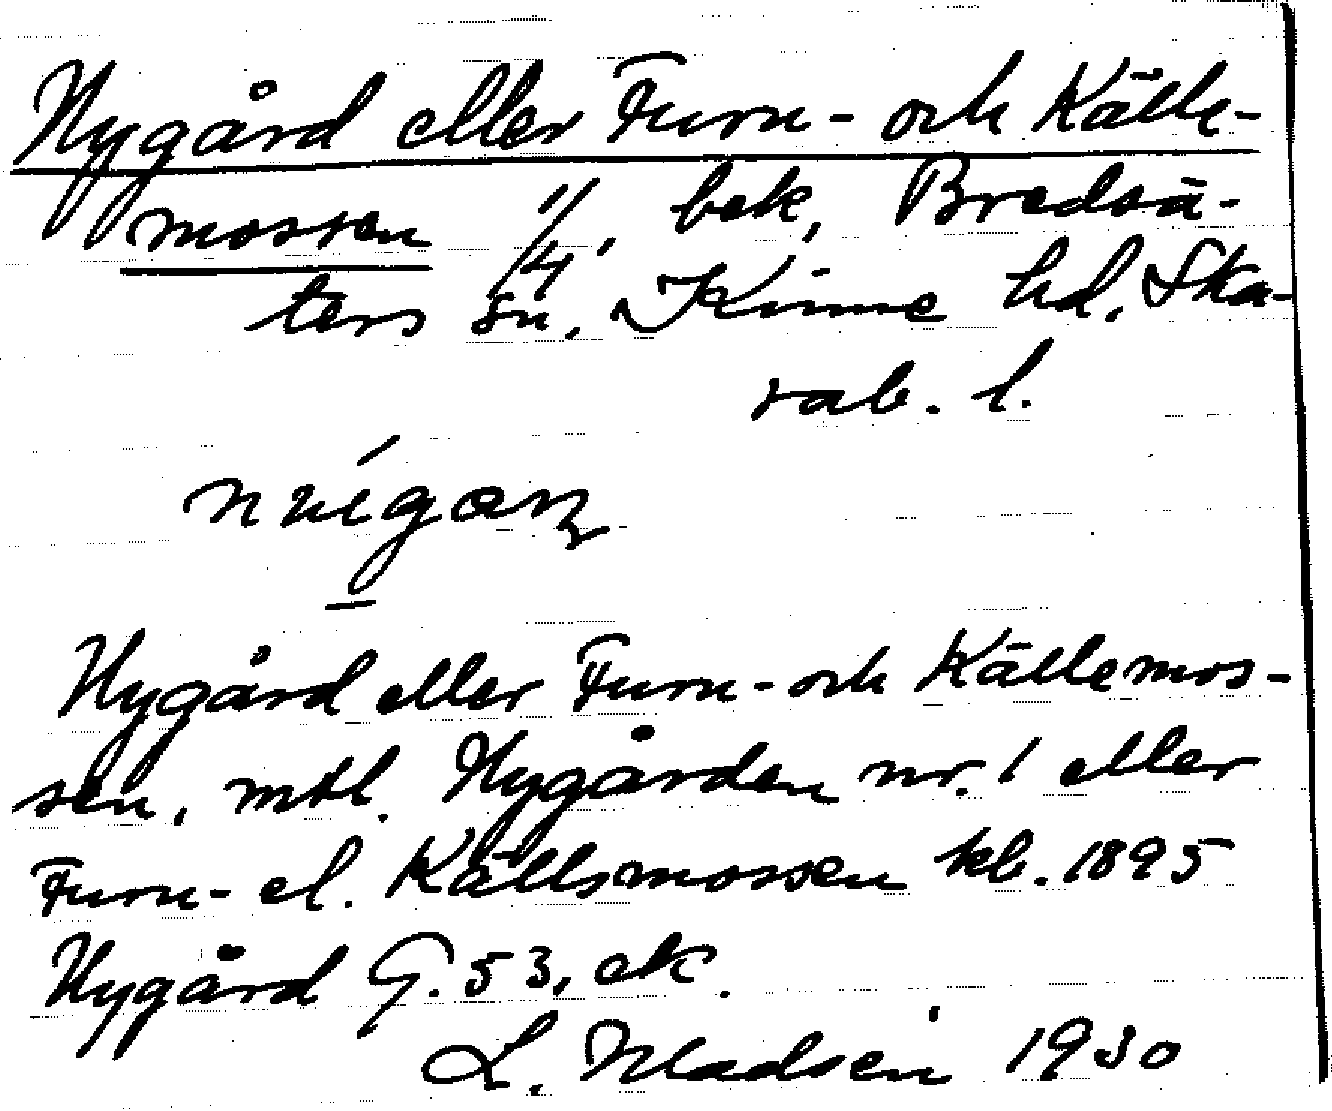 Nygård eller Furn- och Källe-
mossen 1/4, bek, Bredsä-
ters sn. Kinne hd. Ska-
rab. l.
Nygård eller Furn- och Källemos-
sen, mtl. Nygården nr. 1 eller
Furn- el. Källsmossen kb. 1895
Nygård G. 53, ek.
L. Madsen 1930